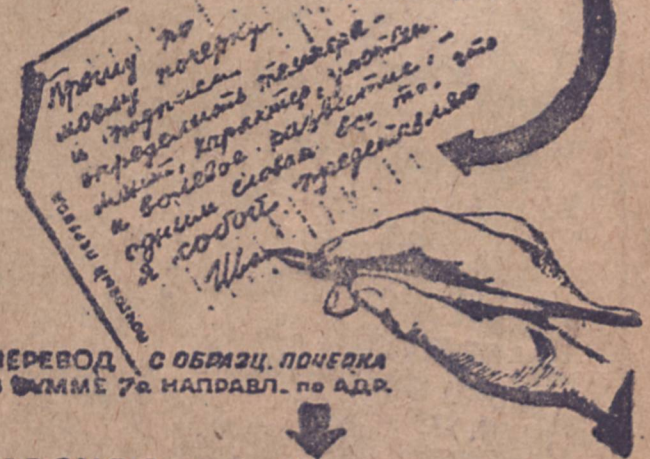 Прошу по
моему почерку
и подписи
определить темпера-
мент, характер, умствен.
и волевое развитие, -
одним словом все то, что
я собой представляю
Шва
почтовый перевод
ПЕРЕВОД С ОБРАЗЦ. ПОЧЕРКА
В СУММЕ 7р. НАПРАВЛ. по АДР.